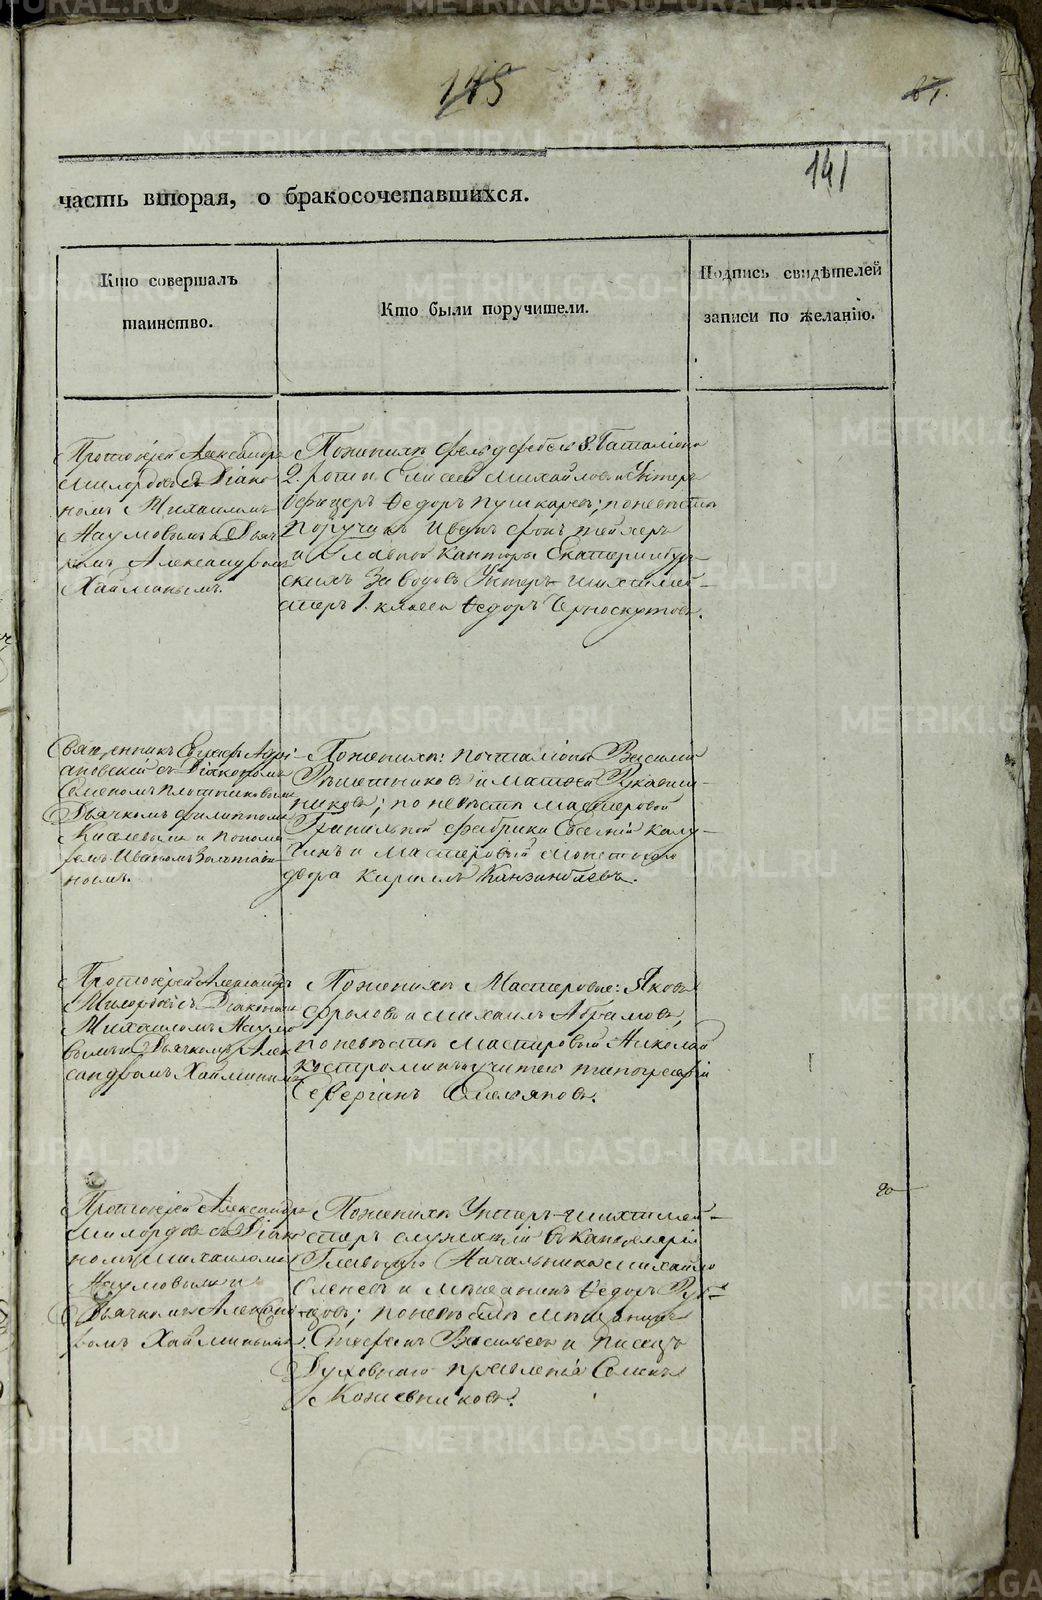 145
87.
141
часть вторая, о бракосочетавшихся.
Кто совершалъ
таинство.
Кто были поручители.
Подпись свидѣтелей
записи по желанію.
Протоіерей Александръ
Милордовъ съ Діако-
номъ Михаиломъ
Наумовымъ и Дьяч-
комъ Александромъ
Хайминымъ.
По женихѣ фельдфебель 8. Баталіона
2. роты Елисей Михайловъ и Унтеръ
Офицеръ Ѳедоръ Пушкаревъ; по невѣстѣ
Поручикъ Иванъ фонъ
и Главной Канторы Екатеринбур-
скихъ Заводовъ Унтеръ-шихтмей-
стеръ 1. класса Ѳедоръ Черноскутовъ.
Священникъ Адрі-
ановскій съ Діакономъ
Семеномъ Плотниковымъ
Дьячкомъ Филиппомъ
Киселевымъ и понома-
ремъ Иваномъ Золотави-
нымъ.
По женихѣ: почталіоны Василій
Рѣшетниковъ и Матвей Рукавиш-
никовъ; по невѣстѣ мастеровой
Гранильной фабрики Евсевій Калу-
гинъ и Мастеровый Монетнаго
двора Кирилъ Канзинбаевъ.
Протоіерей Александръ
Милордовъ съ Діакономъ
Михаиломъ Наумо-
вымъ и Дьячкомъ Алек-
сандромъ Хайминымъ
По женихѣ Мастеровые: Яковъ
Фроловъ и Михаилъ Абрамовъ,
по невѣстѣ Мастеровый Николай
Костроминъ и учитель типографіи
Севергіанъ Емельяновъ.
Протоіерей Александръ
Милордовъ съ Діако-
номъ Михаиломъ
Наумовымъ и
Дьячкомъ Александ-
ромъ Хайминымъ.
По женихѣ Унтеръ-шихтмей-
стеръ служащій въ Канцеляріи
Главнаго Начальника Михайло
и мѣщанинъ Ѳедоръ Руб-
цовъ; по невѣстѣ Мѣщанинъ
Стефанъ Васильевъ и Писецъ
Духовнаго правленія Семенъ
Кожевниковъ.